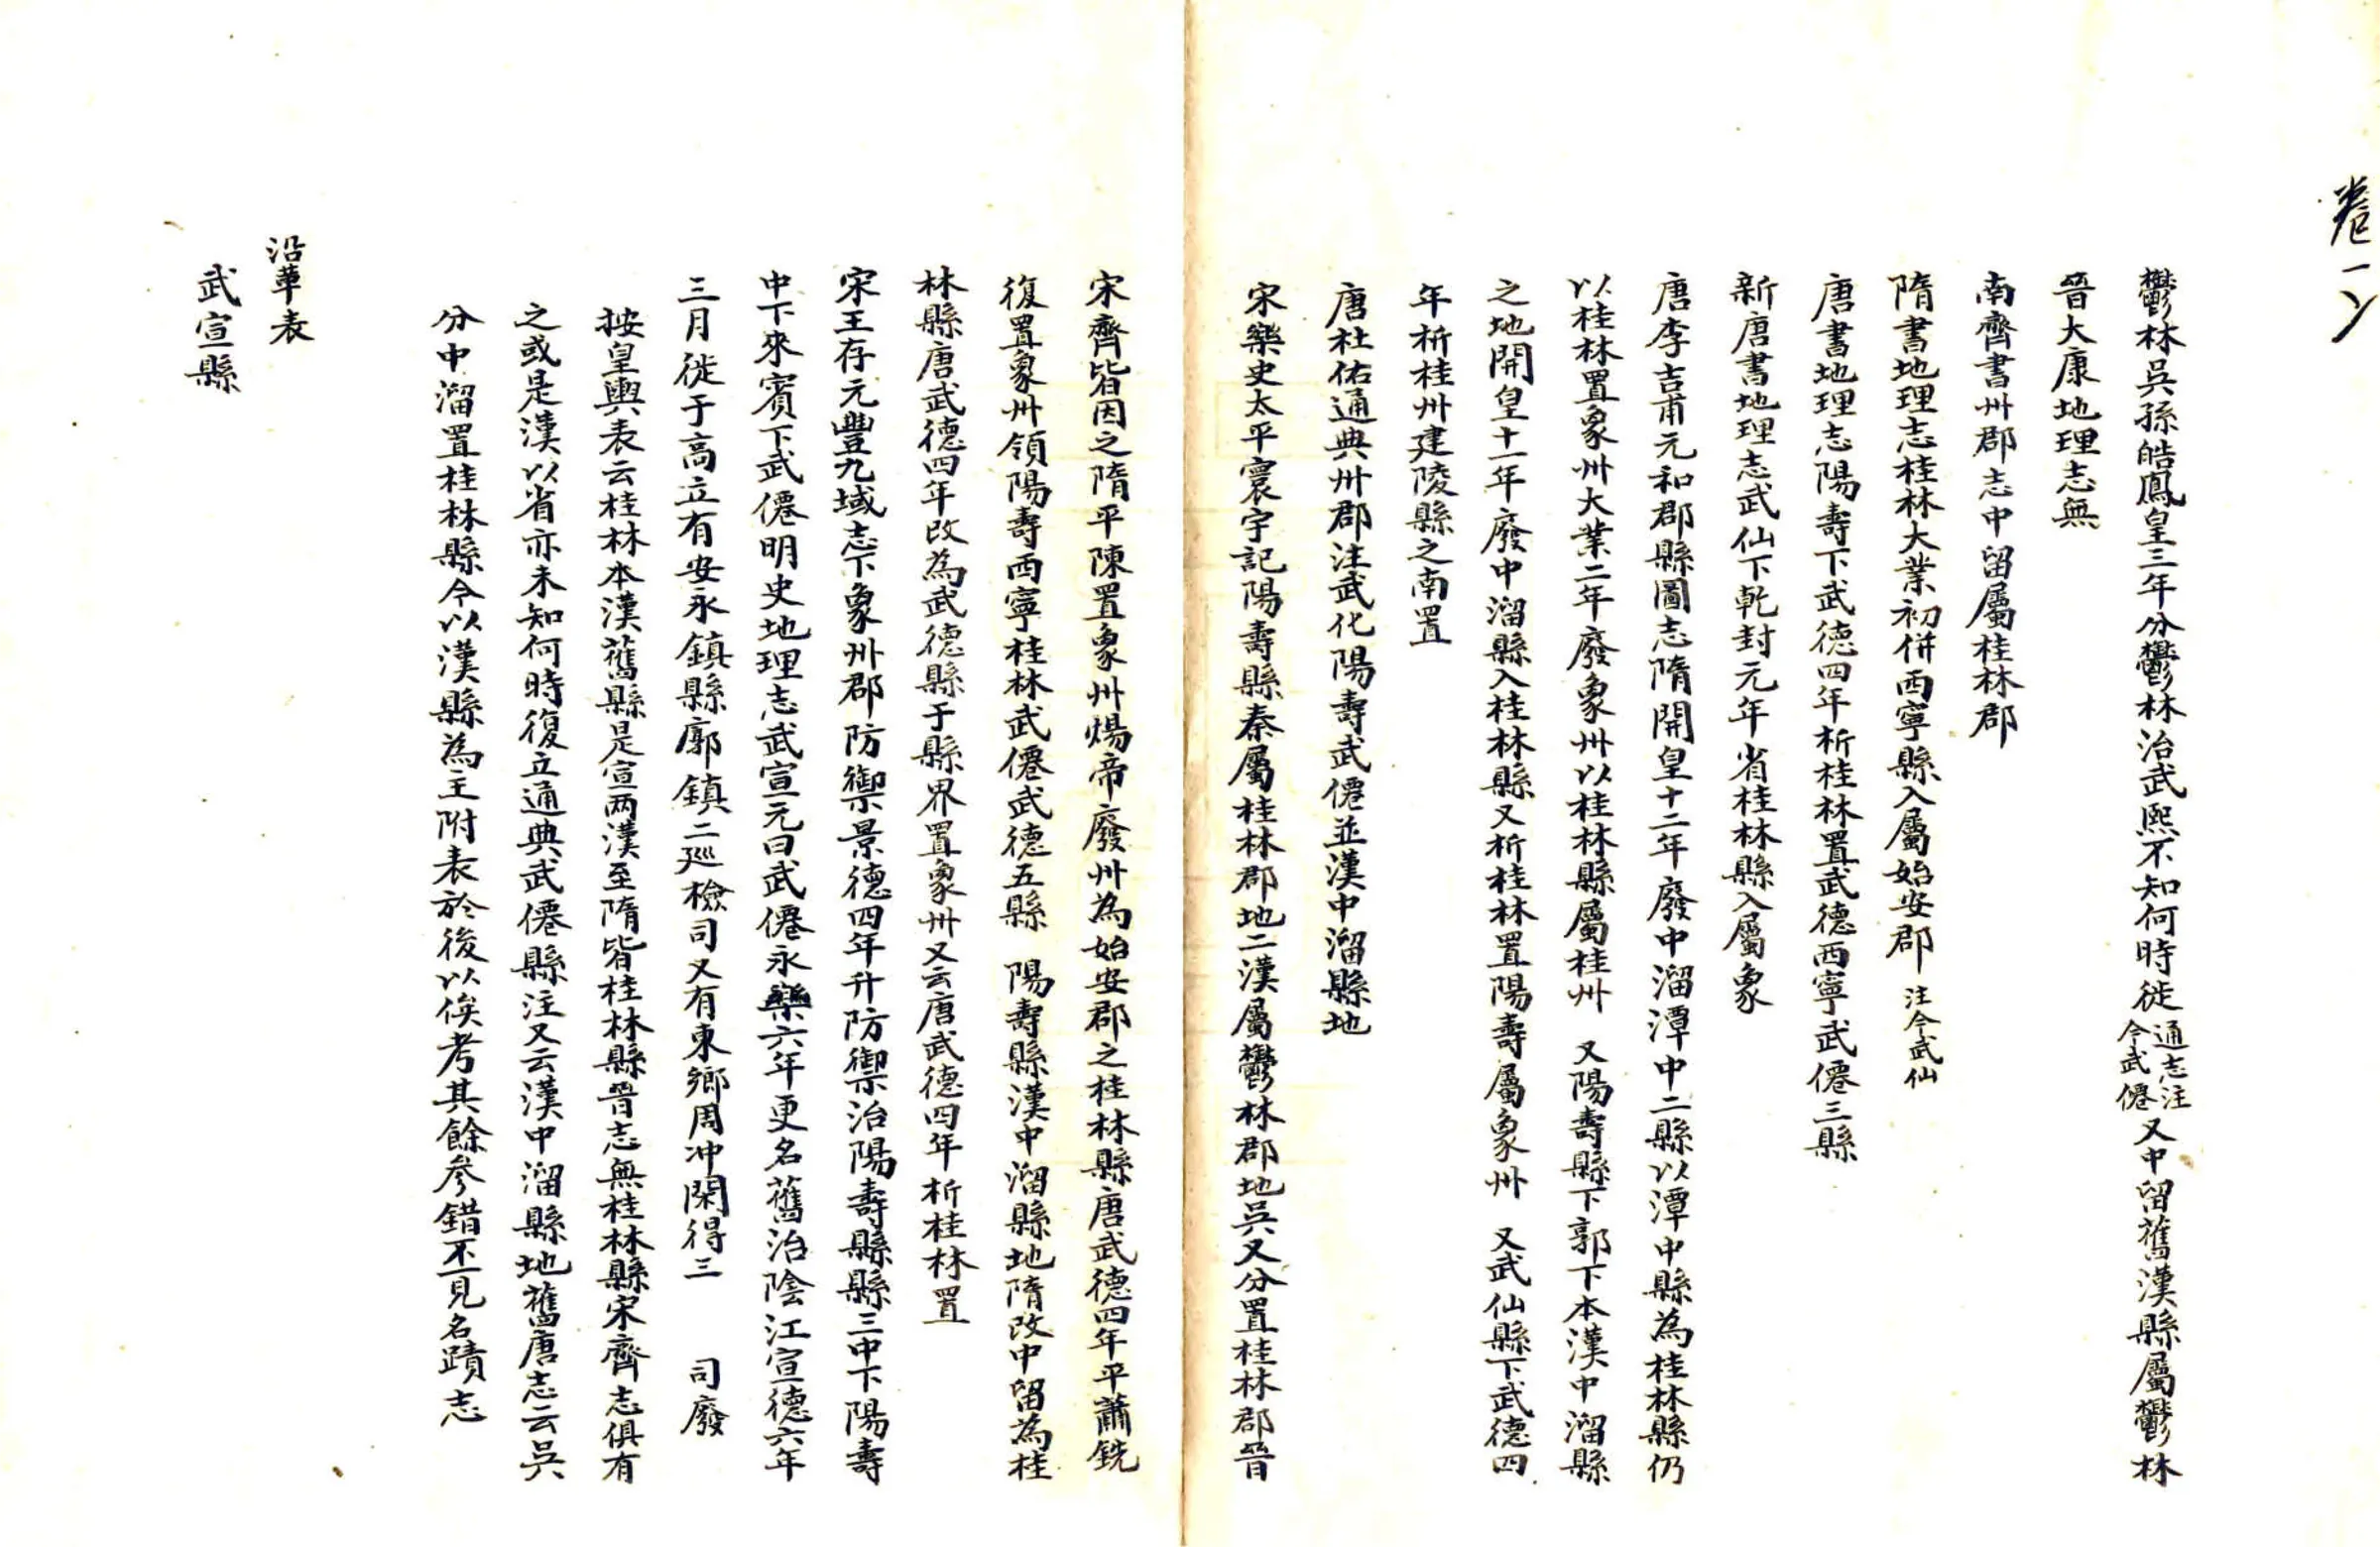 卷一
鬱林吳孫皓鳳皇三年分鬱林治武熙不知何時徙通志注今武僊又中留舊漢縣屬鬱林
晉大康地理志無
南齊書州郡志中留屬桂林郡
隋書地理志桂林大業初併西寧縣入屬始安郡 注今武仙
唐書地理志陽壽下武德四年析桂林置武德西寧武僊三縣
新唐書地理志武仙下乾封元年省桂林縣入屬象
唐李吉甫元和郡縣圖志隋開皇十二年廢中溜潭中二縣以潭中縣為桂林縣仍
以桂林置象州大業二年廢象州以桂林縣屬桂州 又陽壽縣下郭下本漢中溜縣
之地開皇十一年廢中溜縣入桂林縣又析桂林置陽壽屬象州 又武仙縣下武德四
年析桂州建陵縣之南置
唐杜佑通典州郡注武化陽壽武僊並漢中溜縣地
宋樂史太平寰宇記陽壽縣秦屬桂林郡地二漢屬鬱林郡地吳又分置桂林郡晉
宋齊皆因之隋平陳置象州煬帝廢州為始安郡之桂林縣唐武德四年平蕭銑
復置象州領陽壽西寧桂林武僊武德五縣 陽壽縣漢中溜縣地隋改中留為桂
林縣唐武德四年改為武德縣于縣界置象州又云唐武德四年析桂林置
宋王存元豐九域志下象州郡防禦景德四年升防禦治陽壽縣縣三中下陽壽
中下來賓下武僊明史地理志武宣元曰武僊永樂六年更名舊治陰江宣德六年
三月徙于高立有安永鎮縣廓鎮二巡檢司又有東鄉周冲閑得三 司廢
按皇輿表云桂林本漢舊縣是宣兩漢至隋皆桂林縣晉志無桂林縣宋齊志俱有
之或是漢以省亦未知何時復立通典武僊縣注又云漢中溜縣地舊唐志云吳
分中溜置桂林縣今以漢縣為主附表於後以俟考其餘參錯不見名蹟志
沿革表
武宣縣